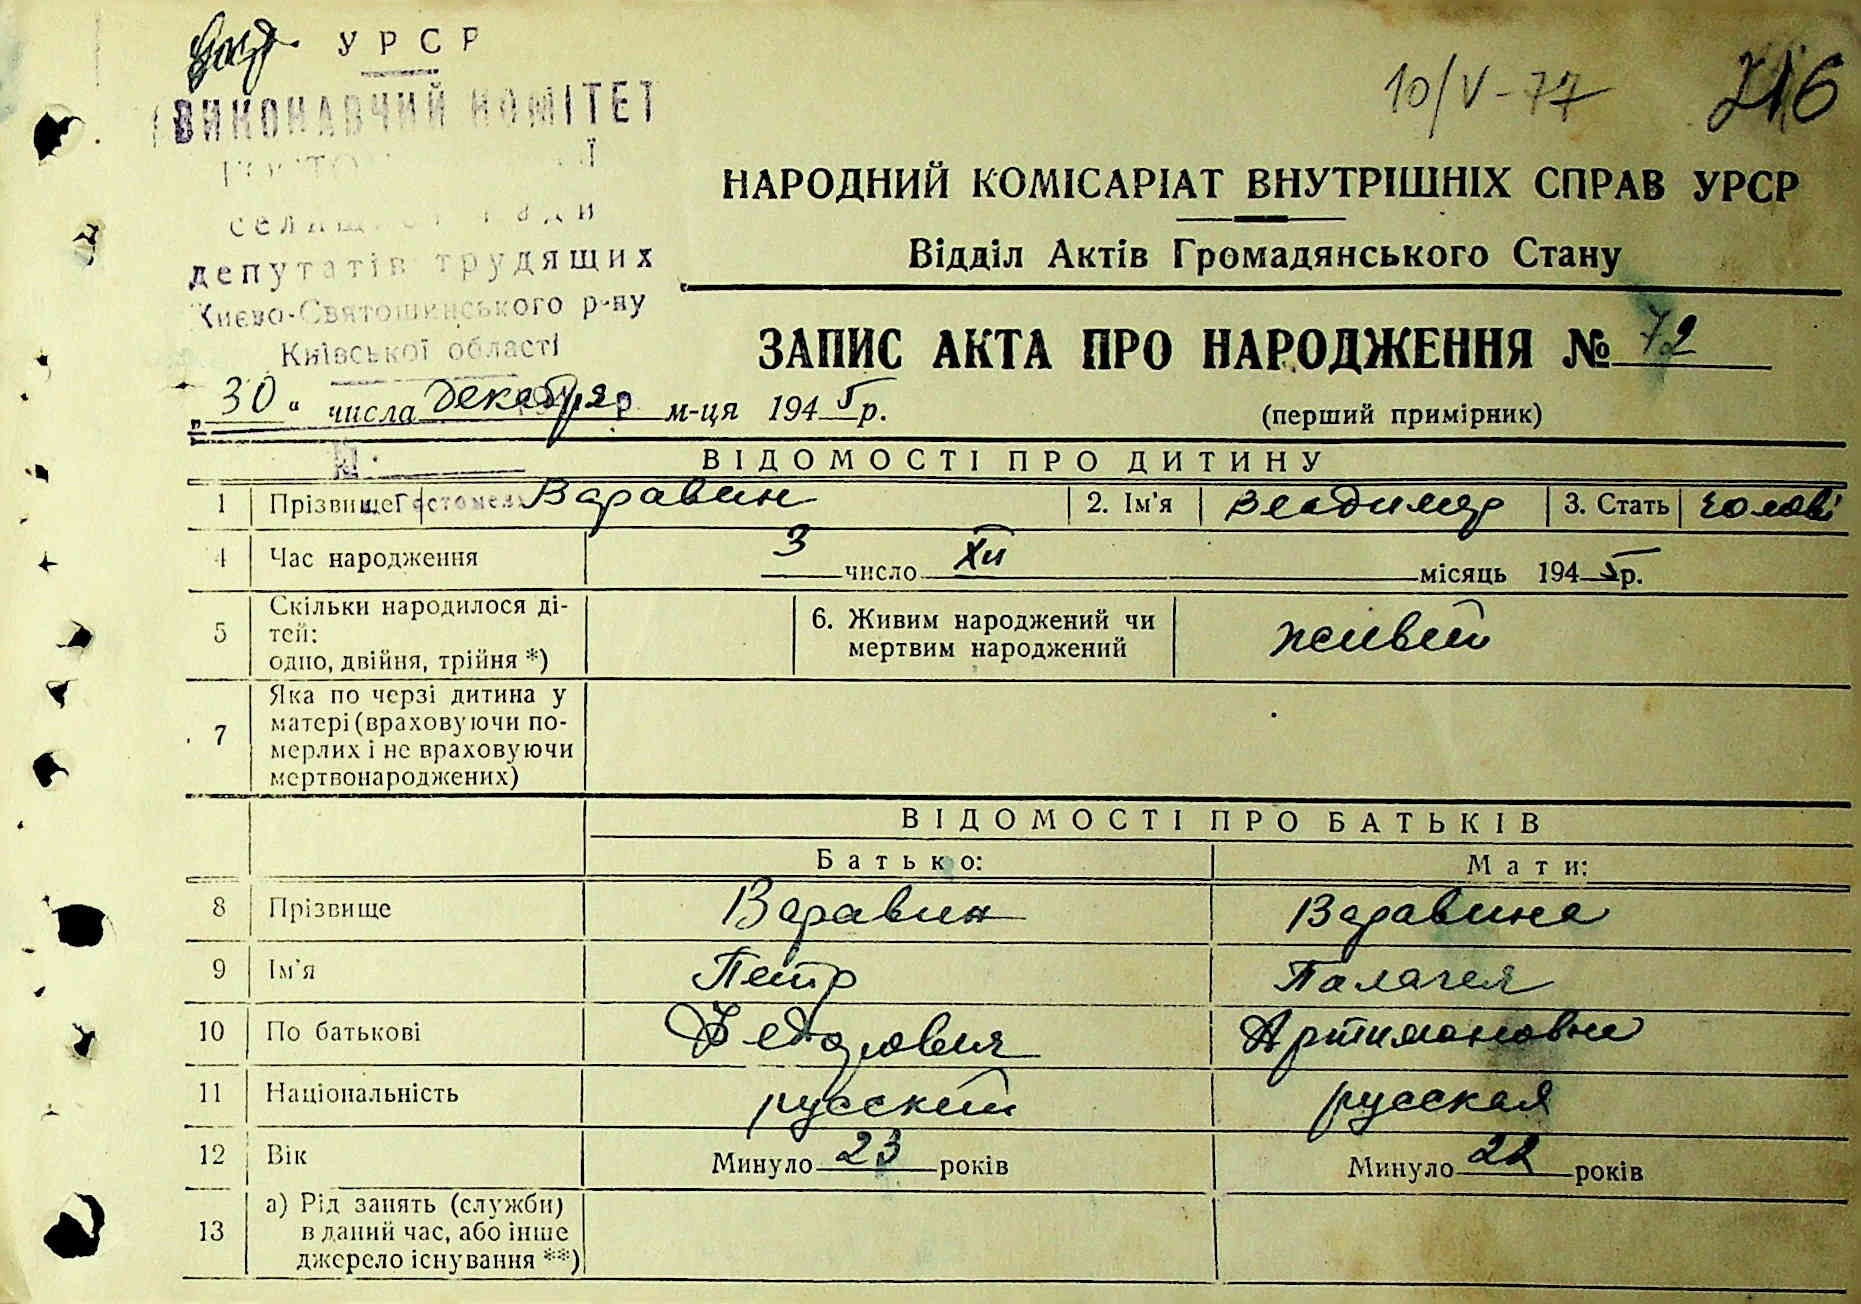 УРСР
10/V-77
216
ВИКОНАВЧИЙ КОМІТЕТ
НАРОДНИЙ КОМІСАРІАТ ВНУТРІШНІХ СПРАВ УРСР
депутатів трудящих
Відділ Актів Громадянського Стану
Києво-Святошинського р-ну
Київської області
ЗАПИС АКТА ПРО НАРОДЖЕННЯ № 72
"30" числа декабря м-ця 1945р.
(перший примірник)
ВІДОМОСТІ ПРО ДИТИНУ
1 Прізвище Варавин 2. Ім'я Владимир 3. Стать чолові
4 Час народження 3 число XII місяць 1945р.
5 Скільки народилося ді-
тей:
одно, двійня, трійня *)
6. Живим народжений чи
мертвим народжений
живий
7 Яка по черзі дитина у
матері (враховуючи по-
мерлих і не враховуючи
мертвонароджених)
ВІДОМОСТІ ПРО БАТЬКІВ
Батько: Мати:
8 Прізвище Варавин Варавина
9 Ім'я Петр Палагея
10 По батькові Федорович Артимоновна
11 Національність русский русская
12 Вік Минуло 23 років Минуло 22 років
13 а) Рід занять (служби)
в даний час, або інше
джерело існування **)